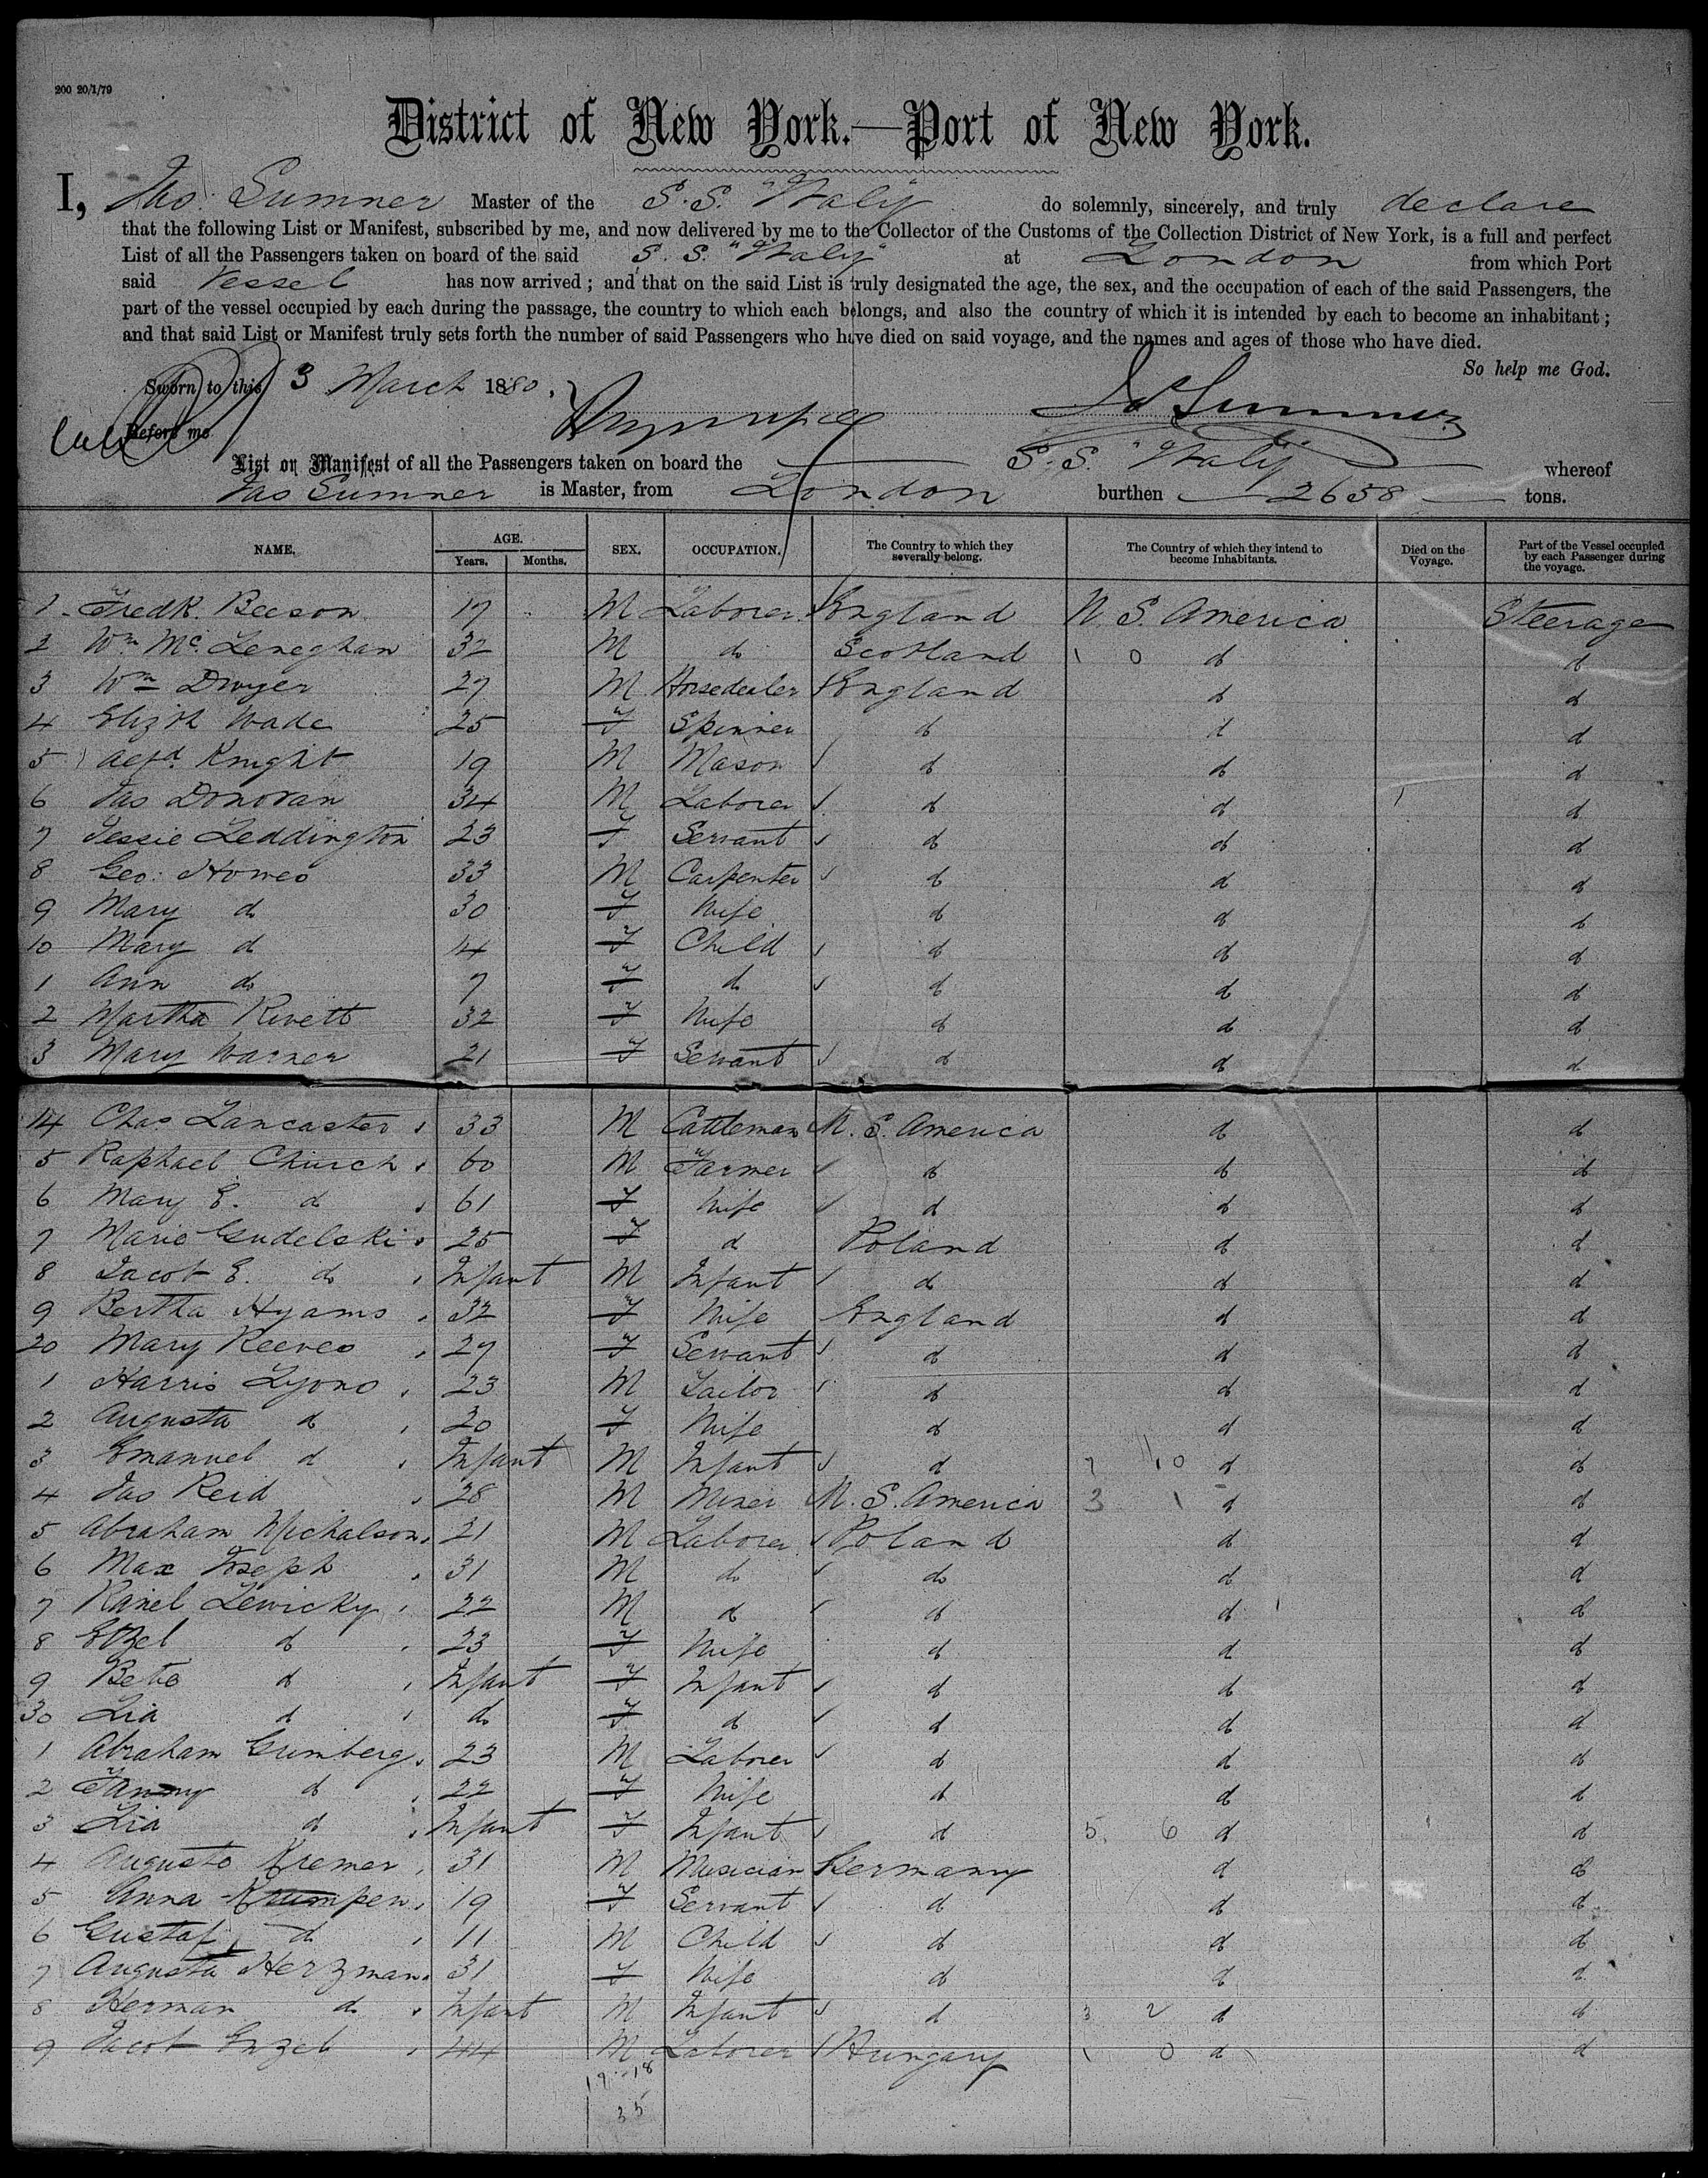 200 20/1/79
District of New York.—Port of New York.
I, Jas. Sumner Master of the S.S. "Italy" do solemnly, sincerely, and truly declare
that the following List or Manifest, subscribed by me, and now delivered by me to the Collector of the Customs of the Collection District of New York, is a full and perfect
List of all the Passengers taken on board of the said S. S. "Italy" at London from which Port
said Vessel has now arrived; and that on the said List is truly designated the age, the sex, and the occupation of each of the said Passengers, the
part of the vessel occupied by each during the passage, the country to which each belongs, and also the country of which it is intended by each to become an inhabitant;
and that said List or Manifest truly sets forth the number of said Passengers who have died on said voyage, and the names and ages of those who have died.
So help me God.
Sworn to this 3 March 1880.
Js Sumner
Before me
List or Manifest of all the Passengers taken on board the S. S. "Italy" whereof
Jas Sumner is Master, from London burthen 2658 tons.
NAME. AGE. Years. Months. SEX. OCCUPATION. The Country to which they severally belong. The Country of which they intend to become Inhabitants. Died on the Voyage. Part of the Vessel occupied by each Passenger during the voyage.
1 Fredk. Beeson 17 M Laborer England U. S. America Steerage
2 Wm Mc. Leneghan 32 M do Scotland 1 0 d d
3 Wm Dwyer 27 M Horsedealer England d d
4 Elizth Wade 25 F Spinner d d d
5 Alfd. Knight 19 M Mason d d d
6 Jas Donovan 34 M Laborer d d d
7 Jessie Leddington 23 F Servant d d d
8 Geo. Howes 33 M Carpenter d d d
9 Mary d 30 F Wife d d d
10 Mary d 14 F Child d d d
1 Ann do 7 F d d d d
2 Martha Rivett 32 F Wife d d d
3 Mary Warner 21 F Servant d d d
14 Chas Lancaster 33 M Cattleman U. S. America d d
5 Raphael Church 60 M Farmer d d d
6 Mary E. d 61 F Wife d d d
7 Marie Gudelski 25 F d Poland d d
8 Jacob E. do Infant M Infant d d d
9 Bertha Hyams 32 F Wife England d d
20 Mary Reeves 27 F Servant d d d
1 Harris Lyons 23 M Tailor d d d
2 Augusta d 20 F Wife d d d
3 Emanuel d Infant M Infant d 7 10 d d
4 Jas Reid 28 M Miner U. S. America 3 1 d d
5 Abraham Michalson 21 M Laborer Poland d d
6 Max Joseph 31 M do do d d
7 Rainel Lewicky 22 M d d d d
8 Etzel d 23 F Wife d d d
9 Bete d Infant F Infant d d d
30 Lia d do F d d d d
1 Abraham Grimberg 23 M Laborer d d d
2 Fanny d 22 F Wife d d d
3 Lia d Infant F Infant d 5 6 d d
4 Augusto Kremer 31 M Musician Germany d d
5 Anna Krumpen 19 F Servant d d d
6 Gustaf d 11 M Child d d d
7 Augusta Herzman 31 F Wife d d d
8 Herman do Infant M Infant d 3 2 d d
9 Jacob Enzel 44 M Laborer Hungary 1 0 d d
19 18
35